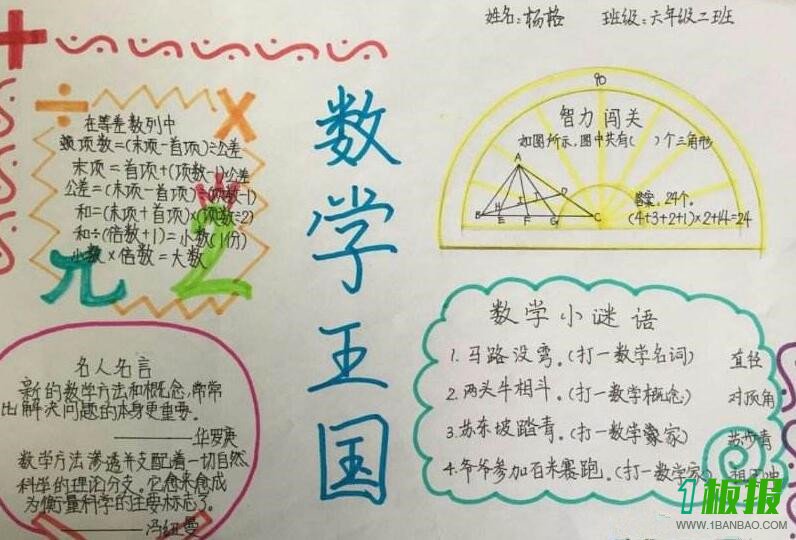 姓名:杨格 班级:六年级二班
+
÷ ×
在等差数列中
项数=(末项-首项)÷公差
末项=首项+(项数-1)公差
公差=(末项-首项)÷(项数-1)
和=(末项+首项)×(项数÷2)
和÷(倍数+1)=小数(1份)
小数×倍数=大数
π 2
名人名言
新的数学方法和概念,常常
比解决问题的本身更重要。
——华罗庚
数学方法渗透并支配着一切自然
科学的理论分支。它愈来愈成
为衡量科学的主要标志了。
——冯纽曼
数学王国
90
智力闯关
如图所示,图中共有( )个三角形
A
H I D
B E F G C
答案:24个。
(4+3+2+1)×2+4=24
数学小谜语
1.马路没弯。(打一数学名词) 直径
2.两头牛相斗。(打一数学概念) 对顶角
3.苏东坡踏青。(打一数学家) 苏步青
4.爷爷参加百米赛跑。(打一数学家) 祖冲
1板报
WWW.1BANBAO.COM